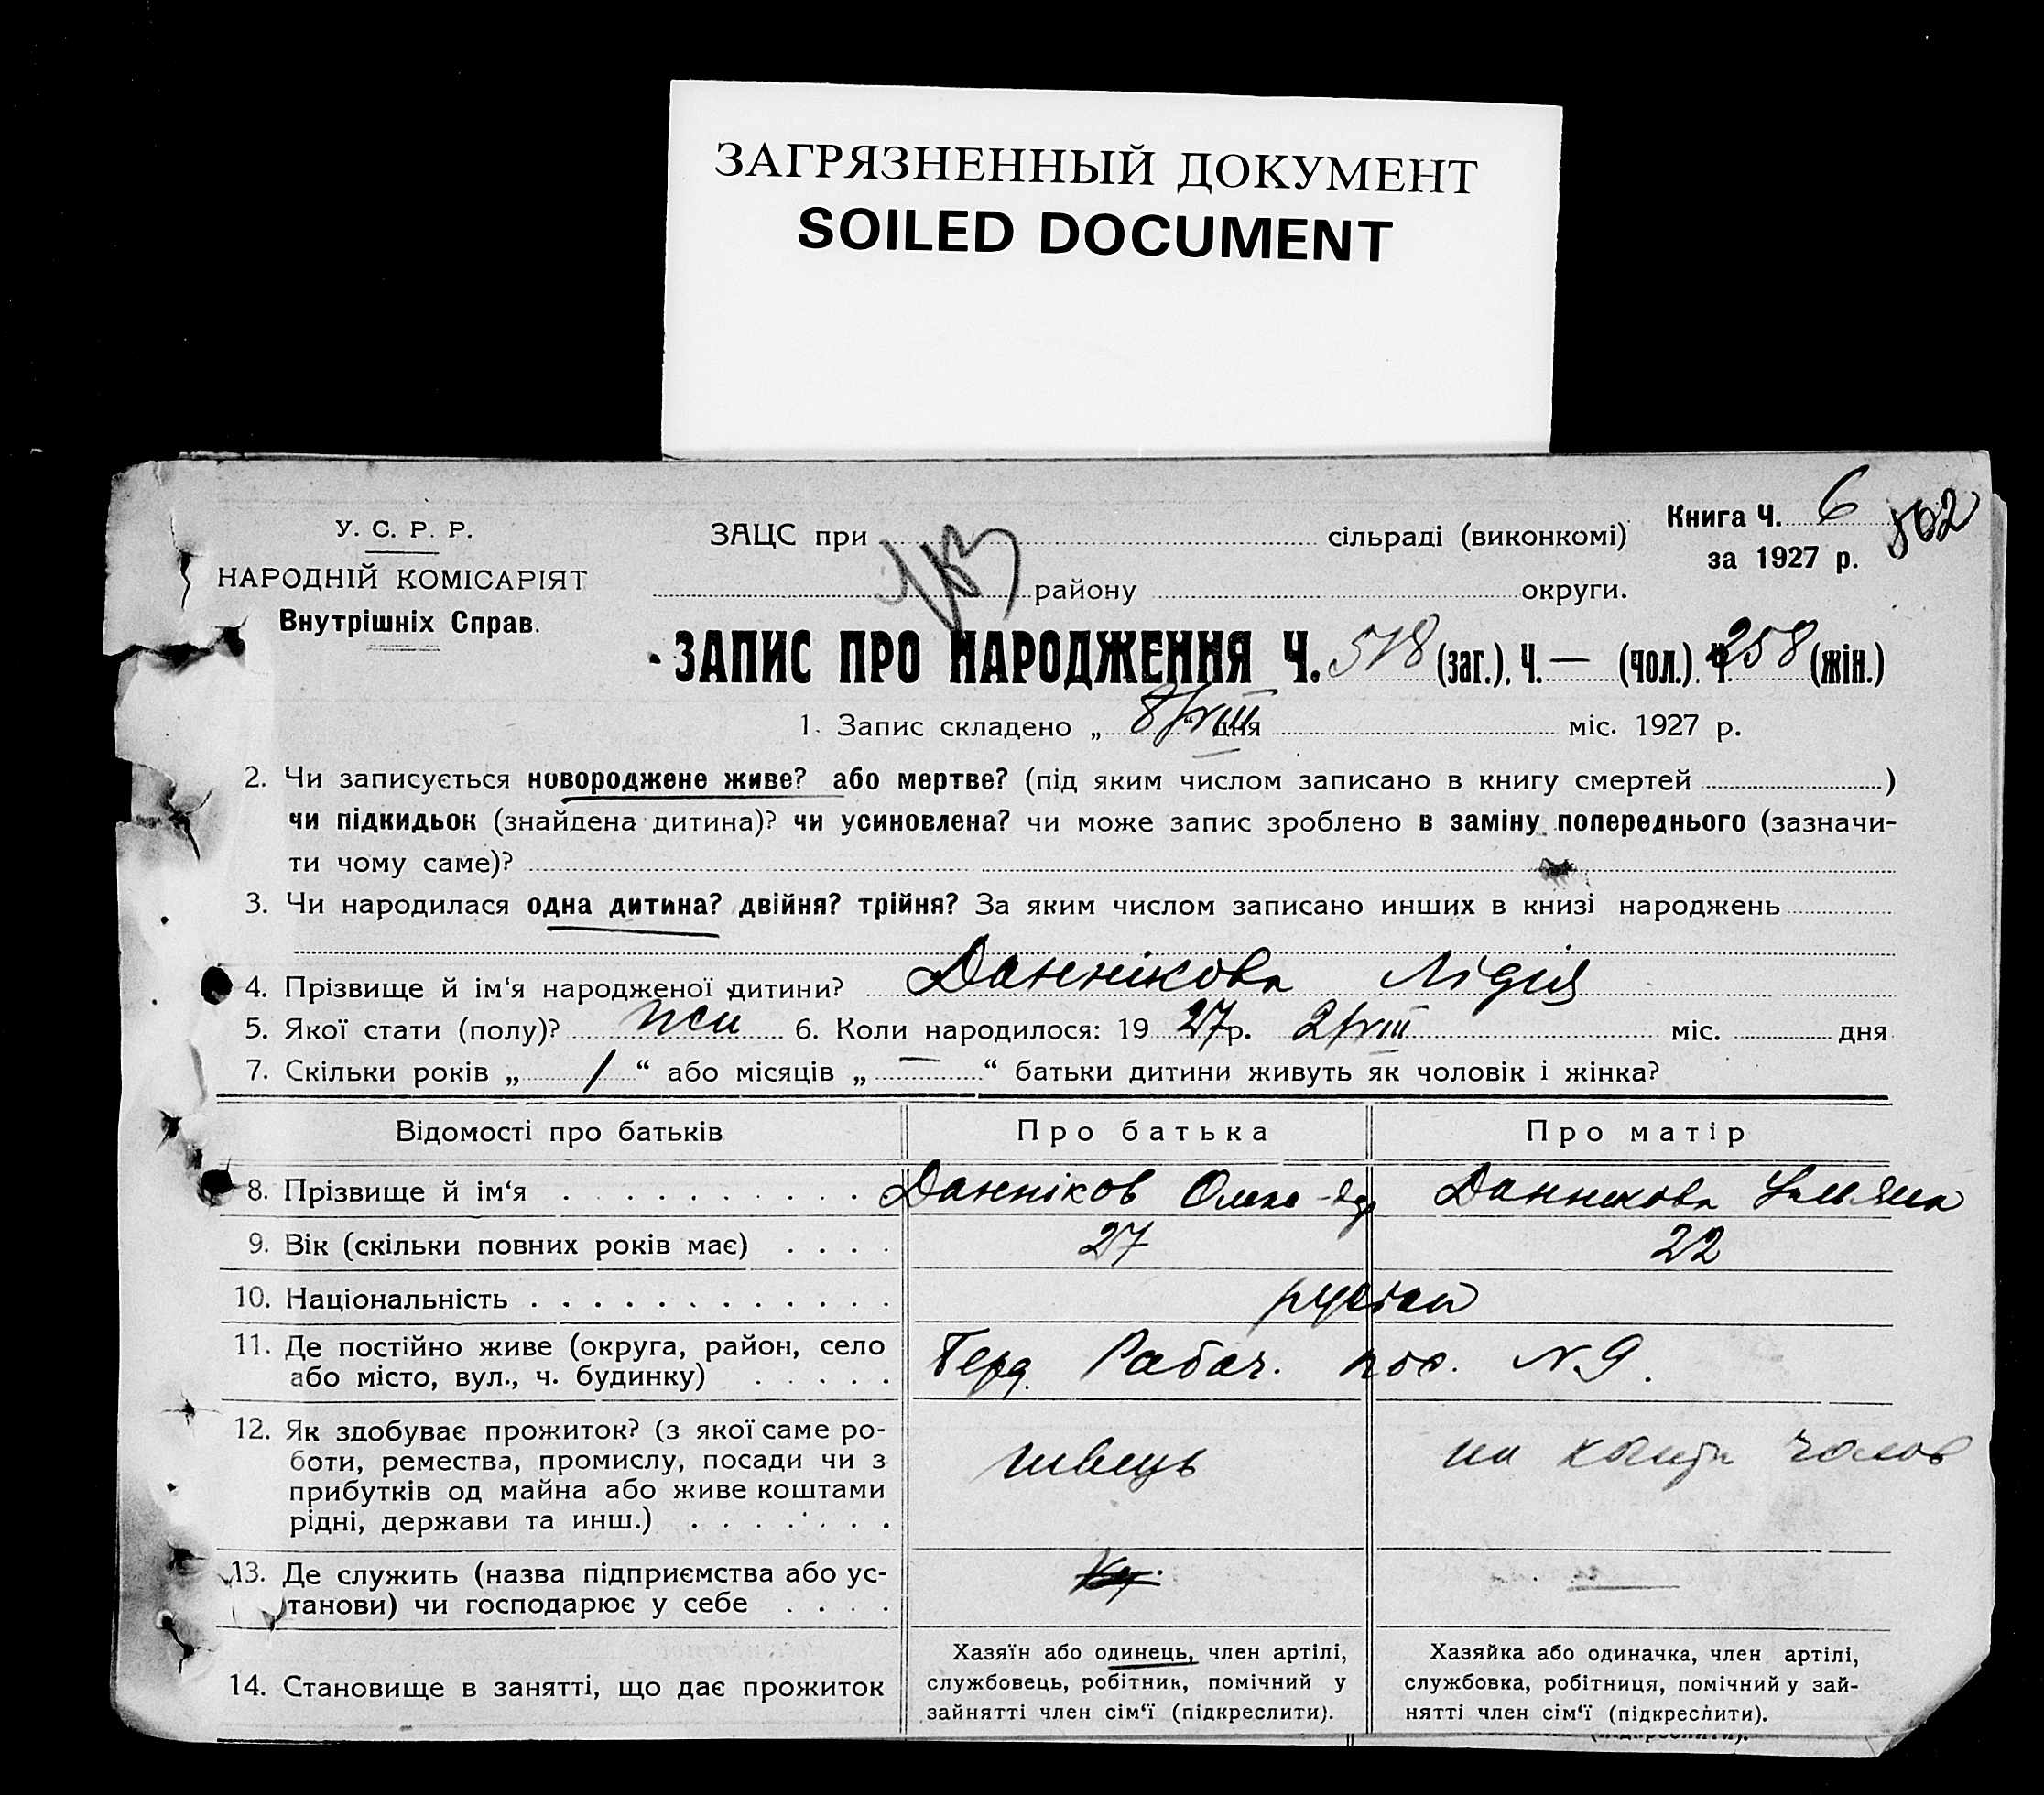 ЗАГРЯЗНЕННЫЙ ДОКУМЕНТ
SOILED DOCUMENT
У. С. Р. Р.
НАРОДНІЙ КОМІСАРІЯТ
Внутрішніх Справ.
ЗАЦС при сільраді (виконкомі)
району округи.
Книга Ч. 6
за 1927 р.
802
ЗАПИС ПРО НАРОДЖЕННЯ Ч. 518 (заг.), Ч. — (чол.). Ч. 258 (жін.)
1. Запис складено „ 8/VIII “ дня міс. 1927 р.
2. Чи записується новороджене живе? або мертве? (під яким числом записано в книгу смертей )
чи підкидьок (знайдена дитина)? чи усиновлена? чи може запис зроблено в заміну попереднього (зазначи-
ти чому саме)?
3. Чи народилася одна дитина? двійня? трійня? За яким числом записано инших в книзі народжень
4. Прізвище й ім‘я народженої дитини? Даннікова Лідія
5. Якої стати (полу)? жін 6. Коли народилося: 19 27 р. 2/VIII міс. дня
7. Скільки років „ 1 “ або місяців „ — “ батьки дитини живуть як чоловік і жінка?
Відомості про батьків Про батька Про матір
8. Прізвище й ім‘я Данніков Олександр Даннікова Уляна
9. Вік (скільки повних років має) 27 22
10. Національність
11. Де постійно живе (округа, район, село
або місто, вул., ч. будинку)
Берд. Рабоч. пос. № 9.
12. Як здобуває прожиток? (з якої саме ро-
боти, ремества, промислу, посади чи з
прибутків од майна або живе коштами
рідні, держави та инш.)
швець на кошти чолов
13. Де служить (назва підприємства або ус-
танови) чи господарює у себе —
14. Становище в занятті, що дає прожиток
Хазяїн або одинець, член артілі,
службовець, робітник, помічний у
зайнятті член сім‘ї (підкреслити).
Хазяйка або одиначка, член артілі,
службовка, робітниця, помічний у зай-
нятті член сім‘ї (підкреслити).